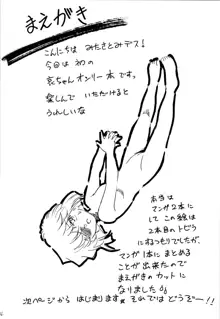 まえがき
こんにちは みたさとみデス!
今回は初の
哀ちゃんオンリー本です。
楽しんでいただけると
うれしいな
本当は
マンガ2本に
して この絵は
2本目のトビラ
にするつもりでしたが、
マンガ1本にまとめる
ことが出来たので
まえがきのカットに
なりました。
次ページから はじまります それではどうぞー!!